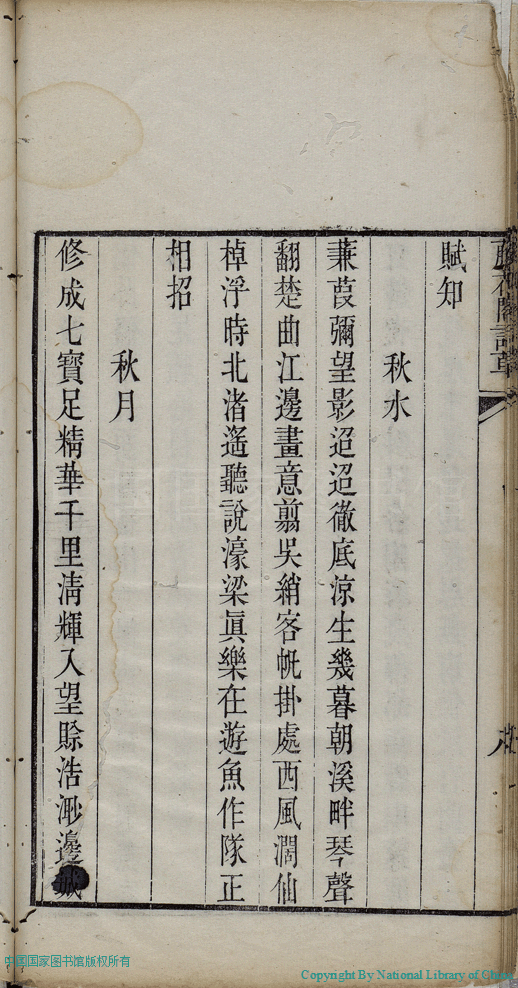 賦知
秋水
蒹葭彌望影迢迢徹底涼生幾暮朝溪畔琴聲
翻楚曲江邊畫意翦吳綃客帆掛處西風濶仙
棹浮時北渚遙聽說濠梁眞樂在遊魚作隊正
相招
秋月
修成七寶足精華千里淸輝入望賒浩渺邊城
中国国家图书馆版权所有
Copyright By National Library of China